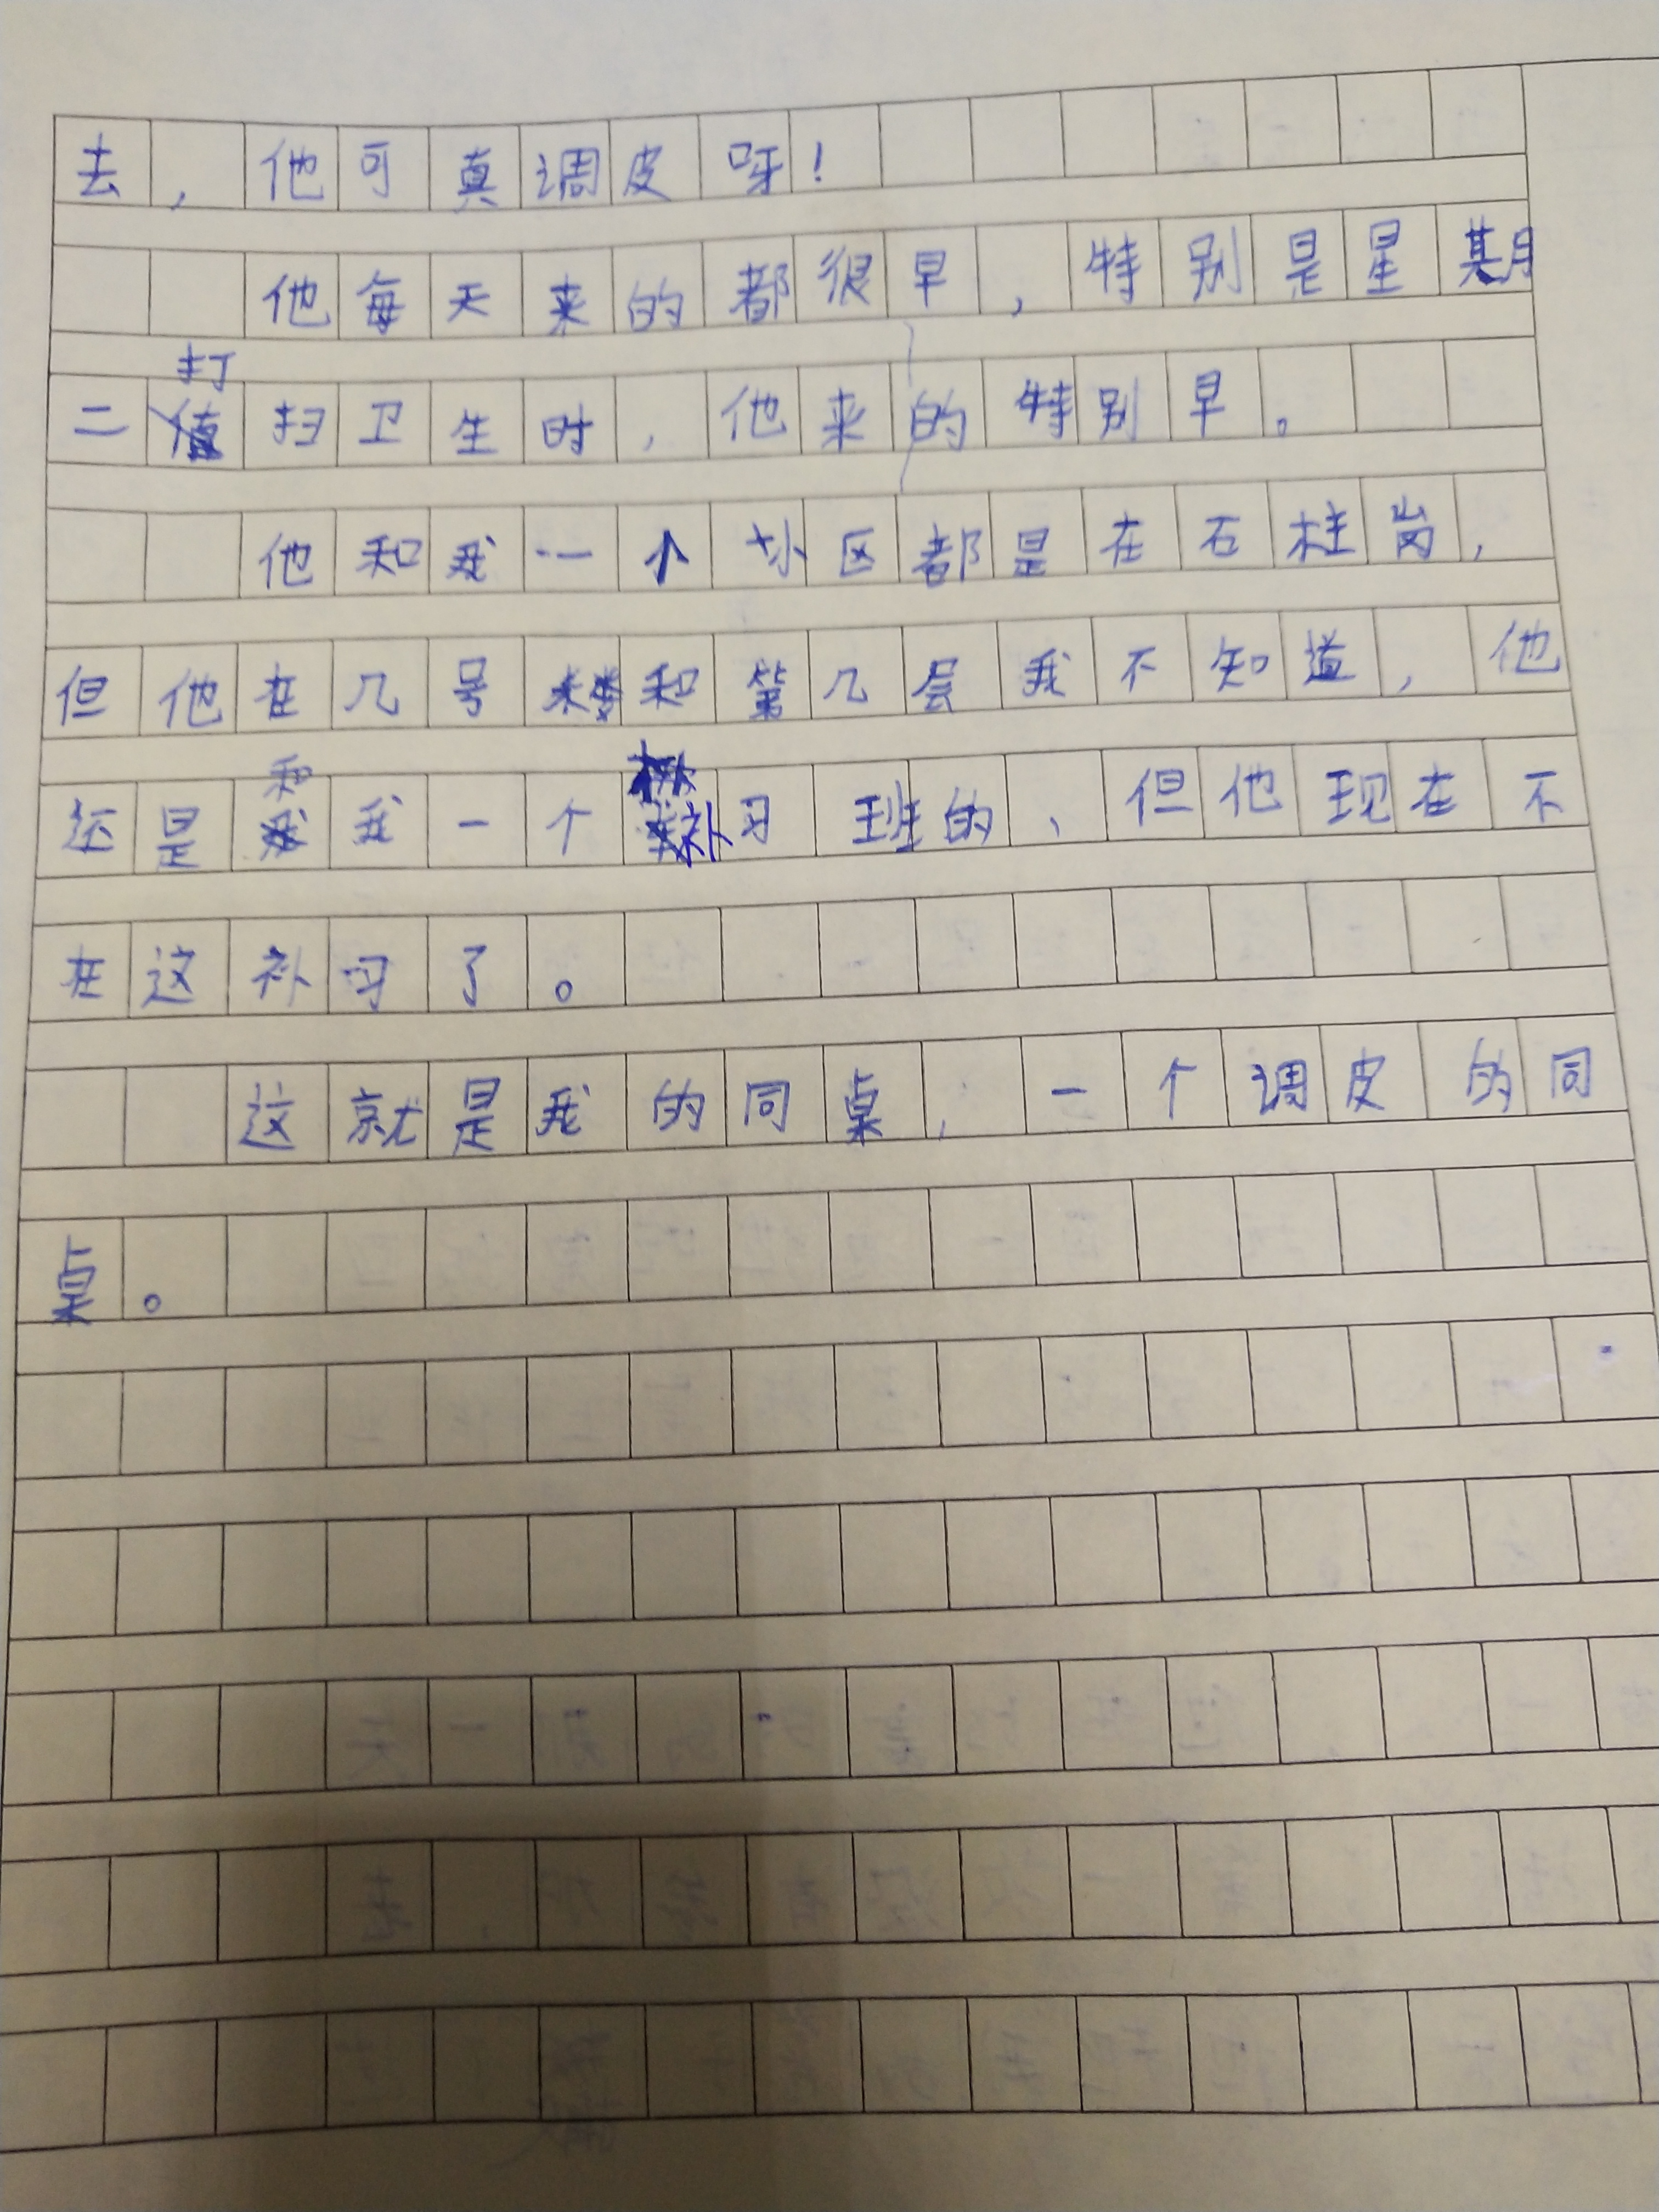 去，他可真调皮呀！
他每天来的都很早，特别是星期
二打扫卫生时，他来的特别早。
他和我一个小区都是在石柱岗，
但他在几号楼和第几层我不知道，他
还是和我一个补习班的，但他现在不
在这补习了。
这就是我的同桌，一个调皮的同
桌。